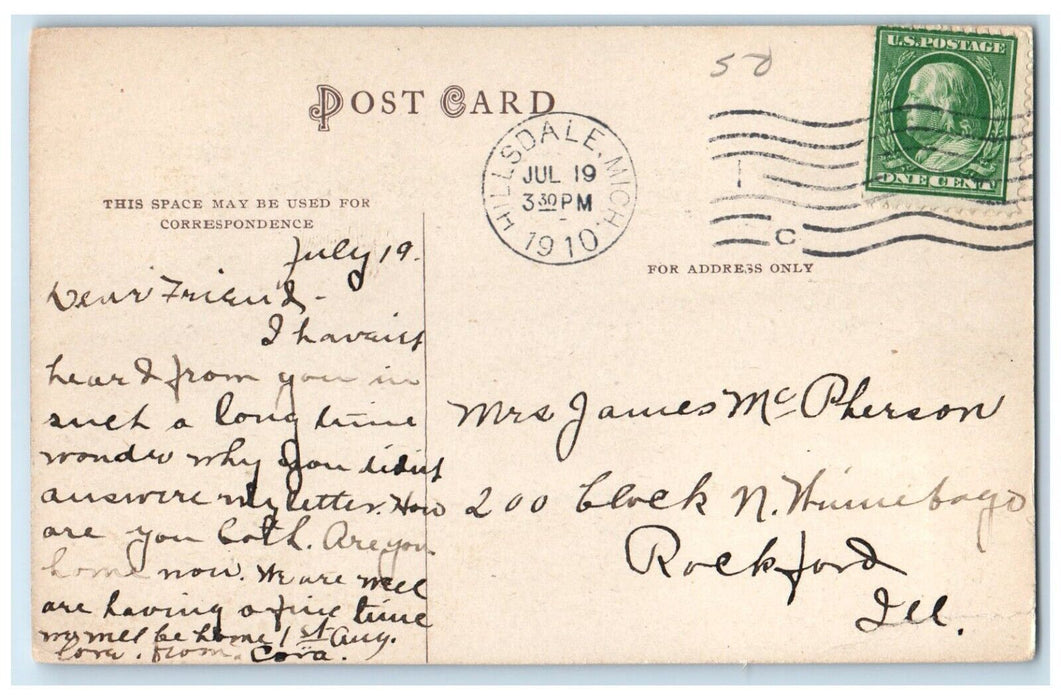 50
U.S. POSTAGE
ONE CENT
POST CARD
HILLSDALE, MICH.
JUL 19
3 30 PM
1910
C
THIS SPACE MAY BE USED FOR
CORRESPONDENCE
FOR ADDRESS ONLY
July 19.
Dear Friend -
I haveist
heard from you in
such a long time
wonder why you didist
answere my letter. How
are you both. Are you
home now. We are well
are having a fine time
will be home 1st Aug.
love. from. Cora.
Mrs James McPherson
200 block N. Winnebago
Rockford
Ill.